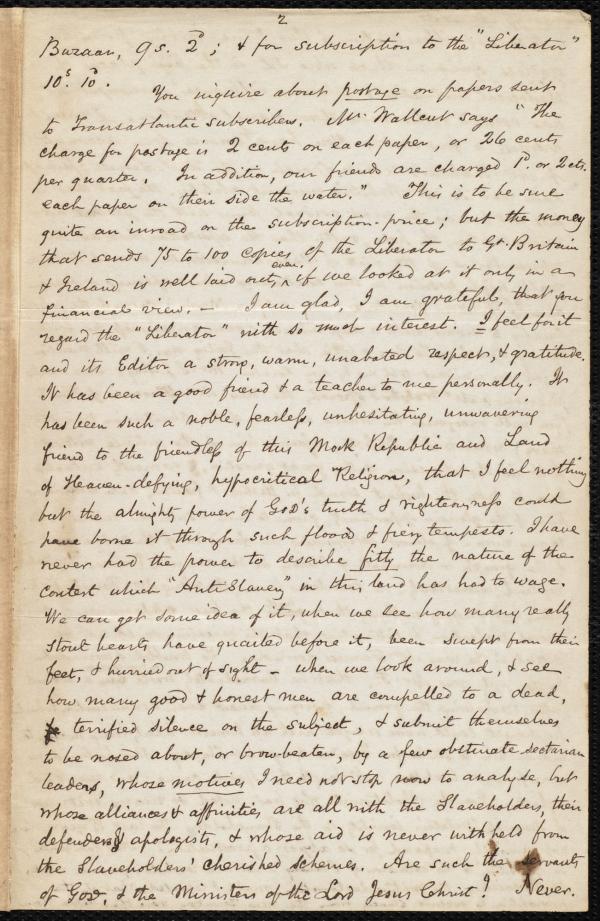 2
Bazaar, 9s. 2d; & for subscription to the "Liberator"
10s. 10.
You inquire about postage on papers sent
to Transatlantic subscribers. Mr. Wallcut says "The
charge for postage is 2 cents on each paper, or 26 cents
per quarter. In addition, our friends are charged 1d. or 2 cts.
each paper on their side the water." This is to be sure
quite an inroad on the subscription-price; but the money
that sends 75 to 100 copies of the Liberator to Gt. Britain
& Ireland is well laid out, even if we looked at it only in a
financial view. – I am glad, I am grateful, that you
regard the "Liberator" with so much interest. I feel for it
and its Editor a strong, warm, unabated respect, & gratitude.
It has been a good friend & a teacher to me personally. It
has been such a noble, fearless, unhesitating, unwavering
friend to the friendless of this Mock Republic and Land
of Heaven-defying, hypocritical Religion, that I feel nothing
but the almighty power of God's truth & righteousness could
have borne it through such floods & fiery tempests. I have
never had the power to describe fitly the nature of the
contest which "AntiSlavery" in this land has had to wage.
We can get some idea of it, when we see how many really
stout hearts have quailed before it, been swept from their
feet, & hurried out of sight – when we look around, & see
how many good & honest men are compelled to a dead,
terrified silence on the subject, & submit themselves
to be nosed about, or brow-beaten, by a few obstinate sectarian
leaders, whose motives I need not stop now to analyse, but
whose alliances & affinities are all with the Slaveholders, their
defenders & apologists, & whose aid is never withheld from
the Slaveholders' cherished schemes. Are such the servants
of God, & the Ministers of the Lord Jesus Christ! Never.